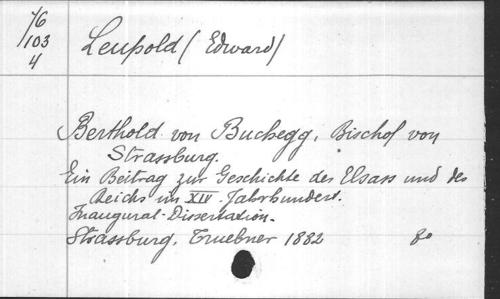 76
103
4
Leupold (Edward)
Berthold von Buchegg, Bischof von
Strassburg.
Ein Beitrag zur Geschichte des Elsass und des
Reichs im XIV. Jahrhundert.
Inaugural-Dissertation.
Strassburg, Truebner 1882 8o